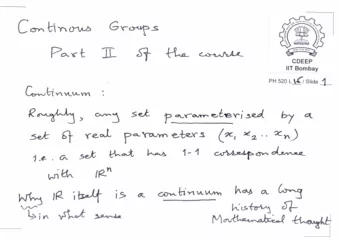 Continous Groups
Part II of the course
CDEEP
IIT Bombay
PH 520 L 15 / Slide 1
Continuum :
Roughly, any set parameterised by a
set of real parameters (x, x2 .. xn)
i.e. a set that has 1-1 correspondence
with IRⁿ
Why IR itself is a continuum has a long
↳ in what sense history of
Mathematical thought